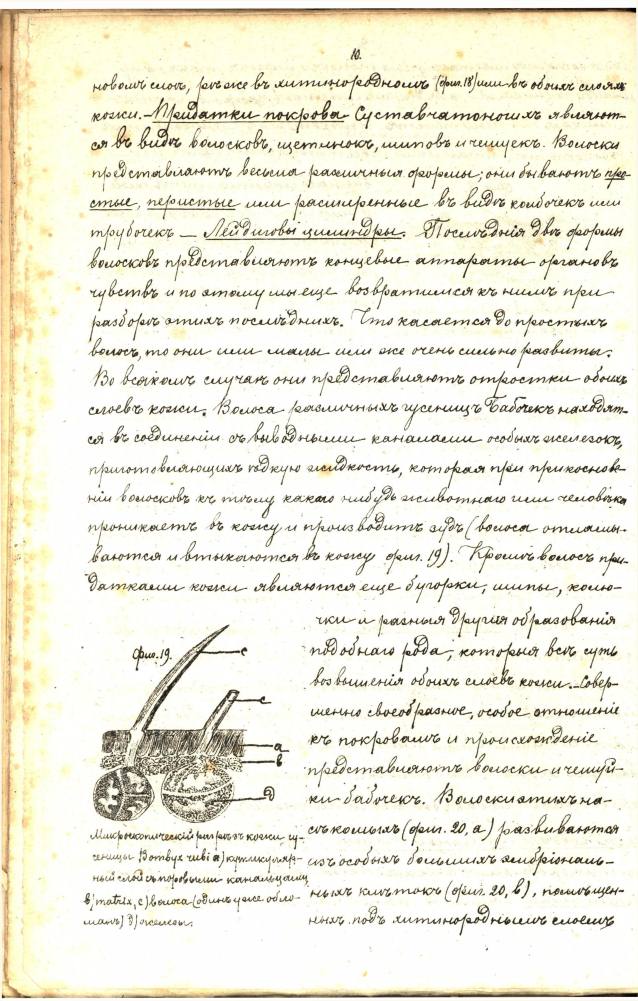 10.
новомъ слоѣ, рѣже въ хитинородномъ (фиг. 18) или въ обоихъ слояхъ
кожи. — Придатки покрова Суставчатоногихъ являют-
ся въ видѣ волосковъ, щетинокъ, шиповъ и чешуекъ. Волоски
представляютъ весьма различныя формы; они бываютъ про-
стые, перистые или расширенные въ видѣ колбочекъ или
трубочекъ — Лейдиговы цилиндры. Послѣднія двѣ формы
волосковъ представляютъ концевые аппараты органовъ
чувствъ и по этому мы еще возвратимся къ нимъ при
разборѣ этихъ послѣднихъ. Что касается до простыхъ
волосъ, то они или малы или же очень сильно развиты.
Во всякомъ случаѣ они представляютъ отростки обоихъ
слоевъ кожи. Волоса различныхъ гусеницъ Бабочекъ находят-
ся въ соединеніи съ выводными каналами особыхъ железокъ,
приготовляющихъ ѣдкую жидкость, которая при прикоснове-
ніи волосковъ къ тѣлу какаго нибудь животнаго или человѣка
проникаетъ въ кожу и производитъ зудъ (волоса отламы-
ваются и втыкаются въ кожу фиг. 19). Кромѣ волосъ при-
датками кожи являются еще бугорки, шипы, колю-
чки и разныя другія образованія
подобнаго рода, которыя всѣ суть
возвышенія обоихъ слоевъ кожи. — Совер-
шенно своеобразное, особое отношеніе
къ покровамъ и происхожденіе
представляютъ волоски и чешуй-
ки бабочекъ. Волоски этихъ на-
сѣкомыхъ (фиг. 20, а) развиваются
изъ особыхъ большихъ эмбріональ-
ныхъ клѣтокъ (фиг. 20, в), помѣщен-
ныхъ подъ хитинороднымъ слоемъ
фиг. 19.
с
с
а
в
д
Микроскопическій разрѣзъ кожи гу-
сеницы а) кутикуляр-
ный слой съ поровыми канальцами,
в) matrix, с) волоса (одинъ уже обло-
манъ) д) железы.